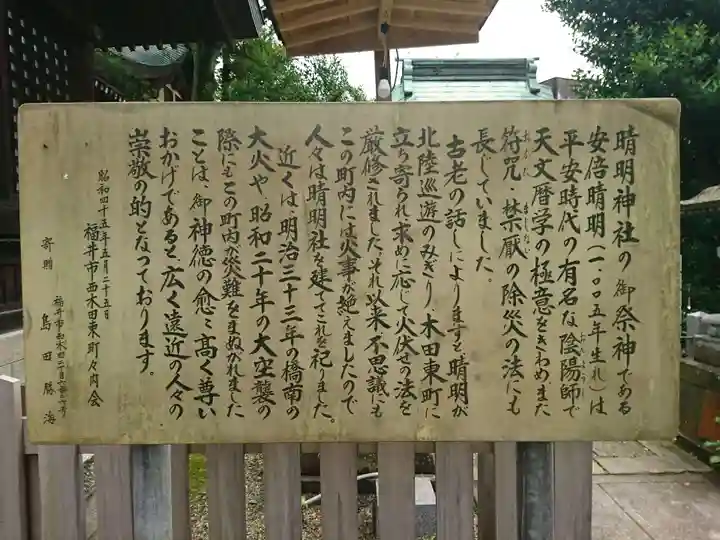 晴明神社の御祭神である
安倍晴明(一、〇〇五年生れ)は
平安時代の有名な陰陽師で
天文暦学の極意をきわめ、また
符呪・禁厭の除災の法にも
長じていました。
古老の話しによりますと晴明が
北陸巡遊のみぎり、木田東町に
立ち寄られ求めに応じて火伏せの法を
厳修されました。それ以来不思議にも
この町内には火事が絶えましたので
人々は晴明社を建てゝこれを祀しました。
近くは、明治三十三年の橋南の
大火や、昭和二十年の大空襲の
際にもこの町内が災難をまぬがれました
ことは、御神徳の愈々高く尊い
おかげであると、広く遠近の人々の
崇敬の的となっております。
昭和四十五年五月二十五日
福井市西木田東町々内会
福井市西木田二丁目
寄贈 島田勝海